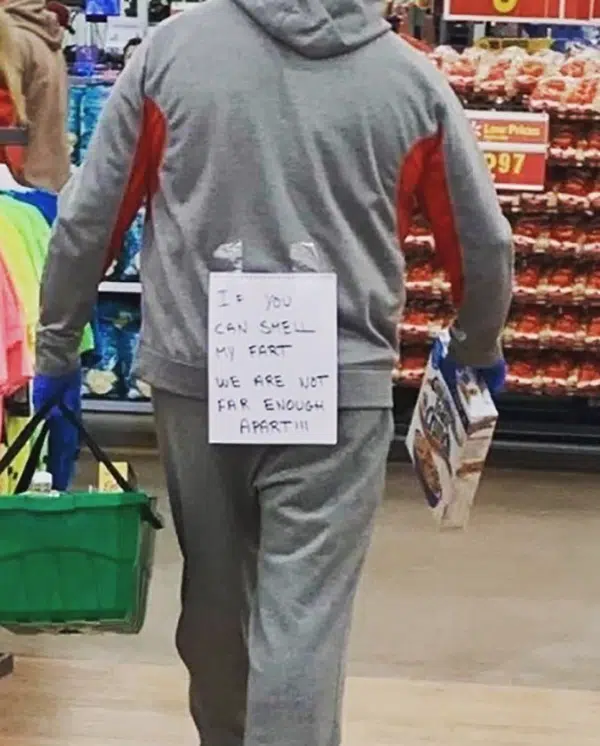 Low Prices
297
IF YOU
CAN SMELL
MY FART
WE ARE NOT
FAR ENOUGH
APART!!!